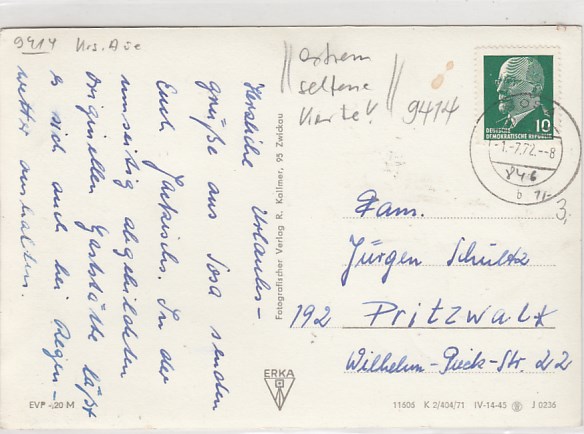 9414 Krs. Aue
extrem
seltene
Karte!
9414
Herzliche Urlaubs-
grüße aus Sosa senden
Euch Jaekischs. In der
umseitig abgebildeten
originellen Gaststätte läßt
es sich auch bei Regen-
wetter aushalten.
Fotografischer Verlag R. Kallmer, 95 Zwickau
10
DEUTSCHE
DEMOKRATISCHE REPUBLIK
-1.-7.72.--8
846
b
3,
Fam.
Jürgen Schultz
192 Pritzwalk
Wilhelm-Pieck-Str. 22
ERKA
EVP -,20 M
11605 K 2/404/71 IV-14-45 J 0236